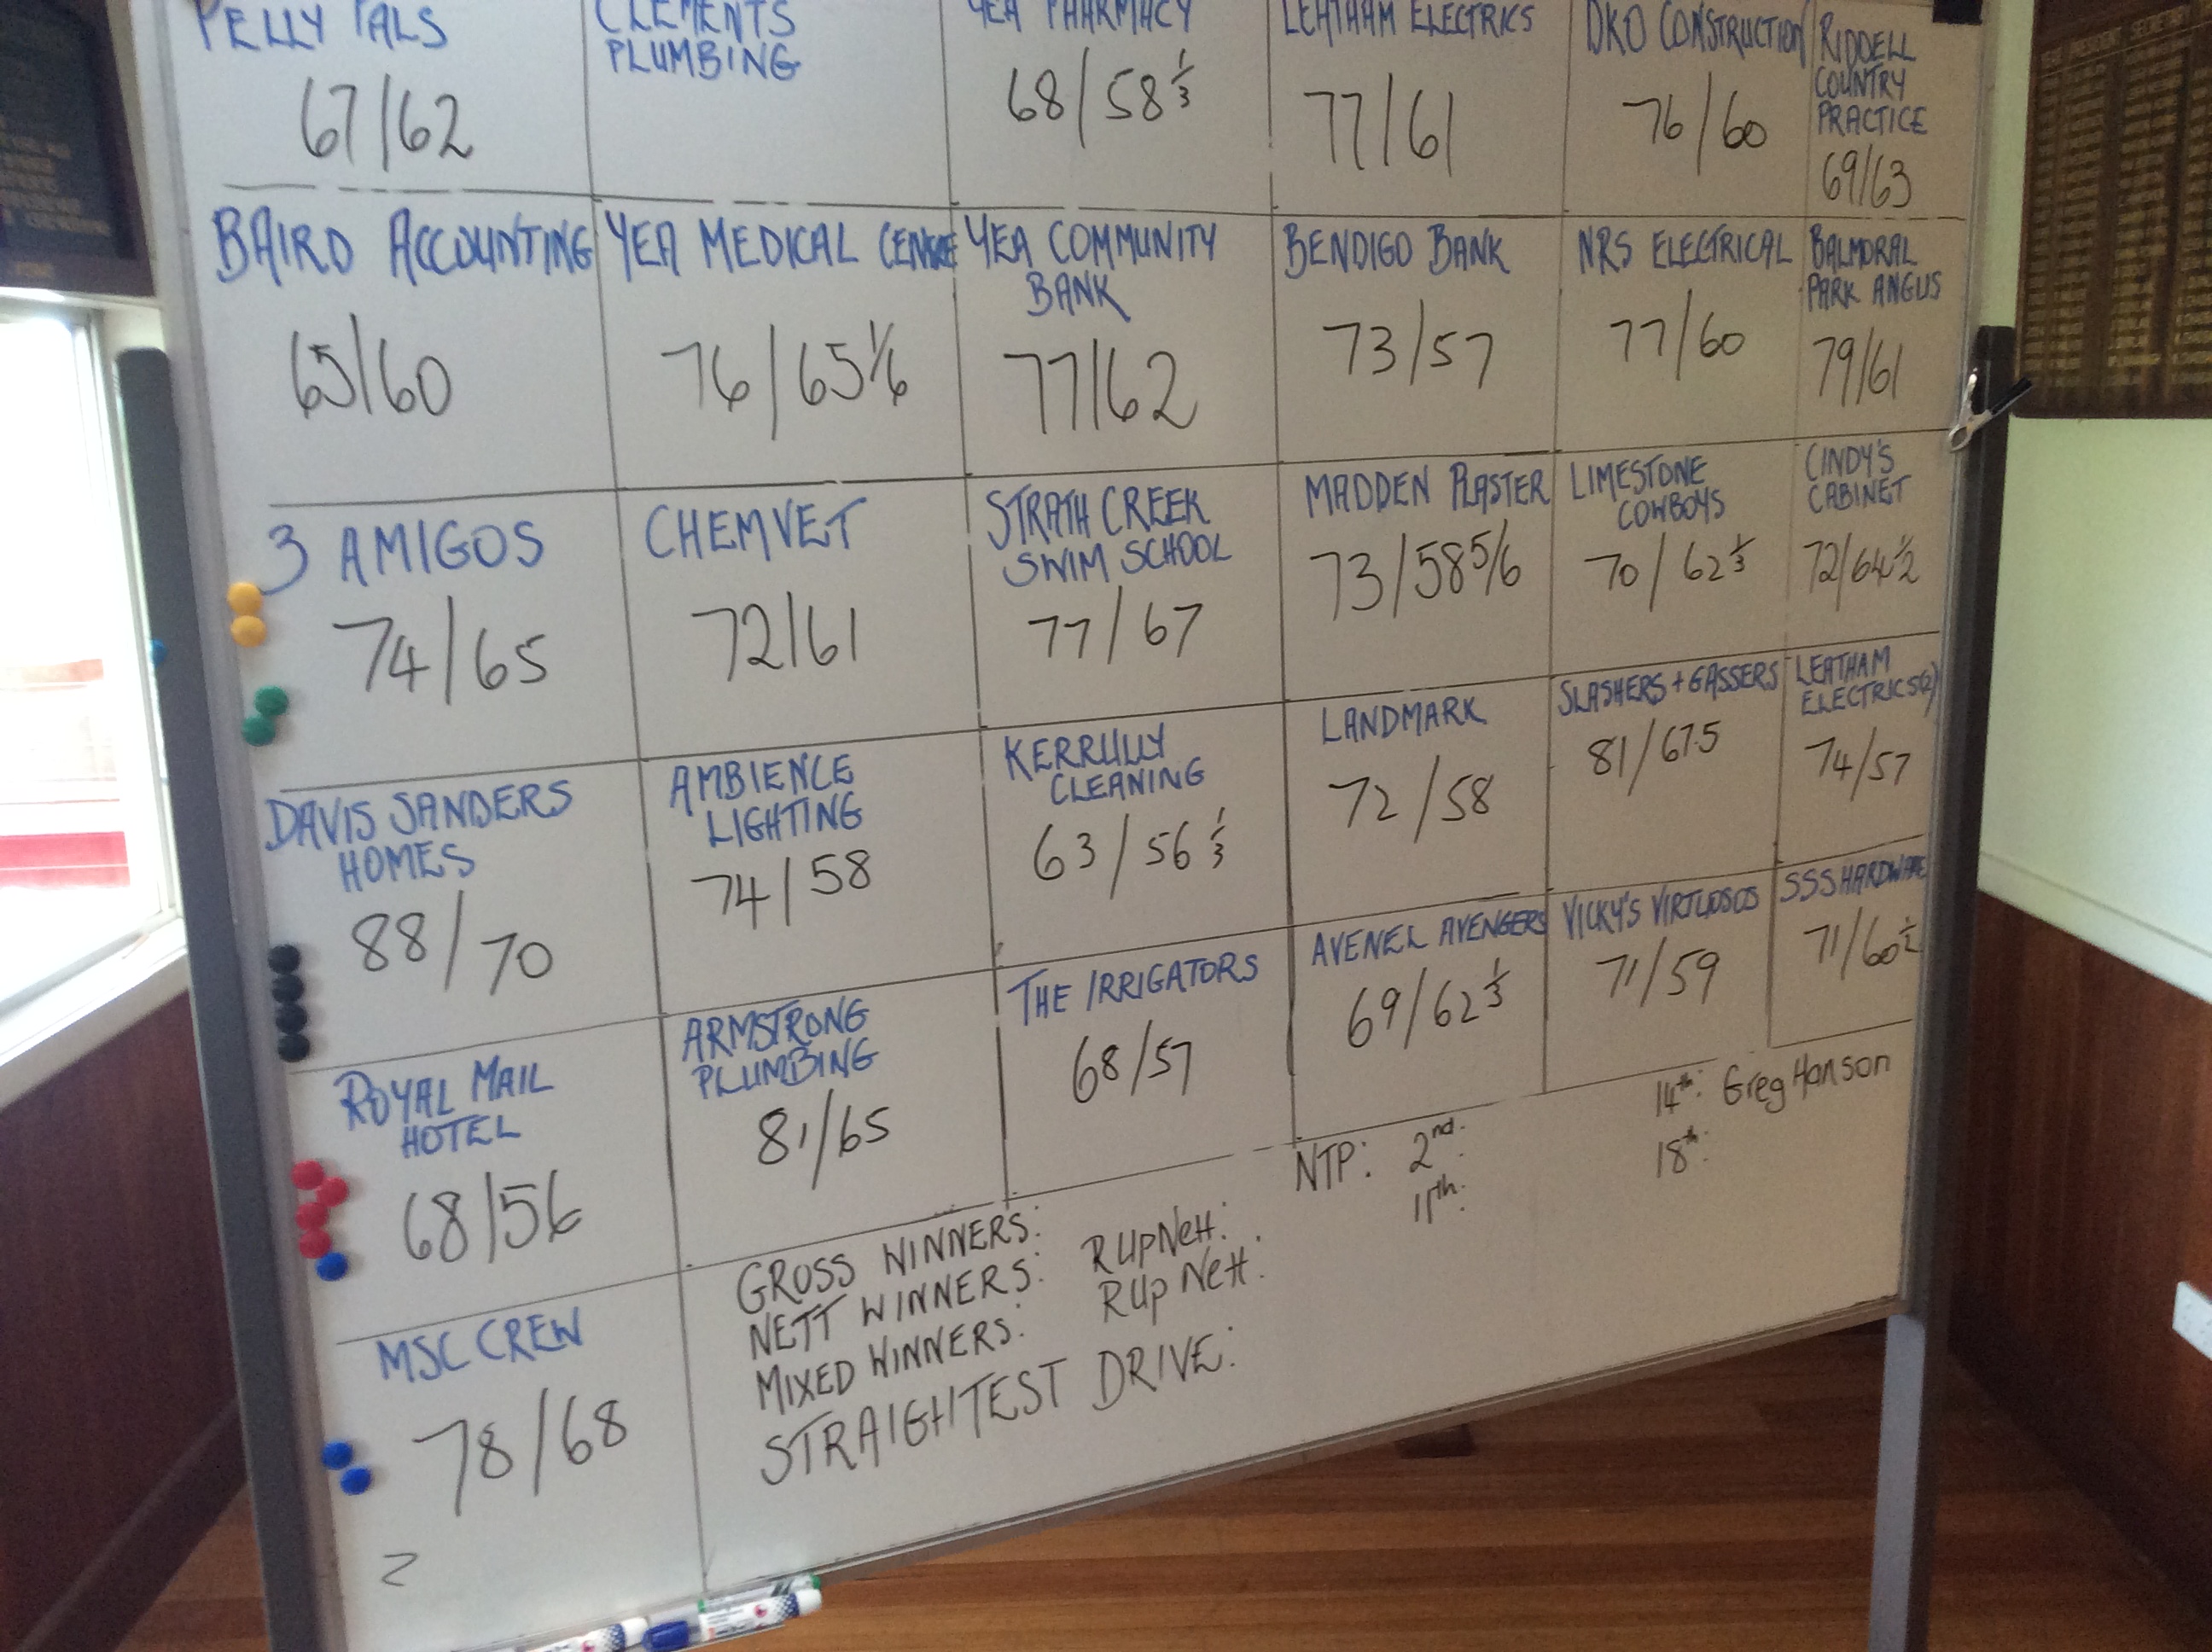 PELLY PALS
67/62
CLEMENTS
PLUMBING
YEA PHARMACY
68/58 1/3
LEATHAM ELECTRICS
77/61
DKO CONSTRUCTION
76/60
RIDDELL
COUNTRY
PRACTICE
69/63
BAIRD ACCOUNTING
65/60
YEA MEDICAL CENTRE
76/65 1/6
YEA COMMUNITY
BANK
77/62
BENDIGO BANK
73/57
NRS ELECTRICAL
77/60
BALMORAL
PARK ANGUS
79/61
3 AMIGOS
74/65
CHEMVET
72/61
STRATH CREEK
SWIM SCHOOL
77/67
MADDEN PLASTER
73/58 5/6
LIMESTONE
COWBOYS
70/62 1/3
CINDY'S
CABINET
72/64 1/2
DAVIS SANDERS
HOMES
88/70
AMBIENCE
LIGHTING
74/58
KERRULLY
CLEANING
63/56 1/3
LANDMARK
72/58
SLASHERS + GASSERS
81/67.5
LEATHAM
ELECTRICS(2)
74/57
ROYAL MAIL
HOTEL
68/56
ARMSTRONG
PLUMBING
81/65
THE IRRIGATORS
68/57
AVENEL AVENGERS
69/62 1/3
VICKY'S VIRTUOSOS
71/59
SSS HARDWARE
71/60 1/2
MSC CREW
78/68
GROSS WINNERS:
NETT WINNERS: RUpNett:
MIXED WINNERS: RUp Nett:
STRAIGHTEST DRIVE:
NTP: 2nd: 14th: Greg Hanson
11th: 18th:
PRESIDENT SECRETARY